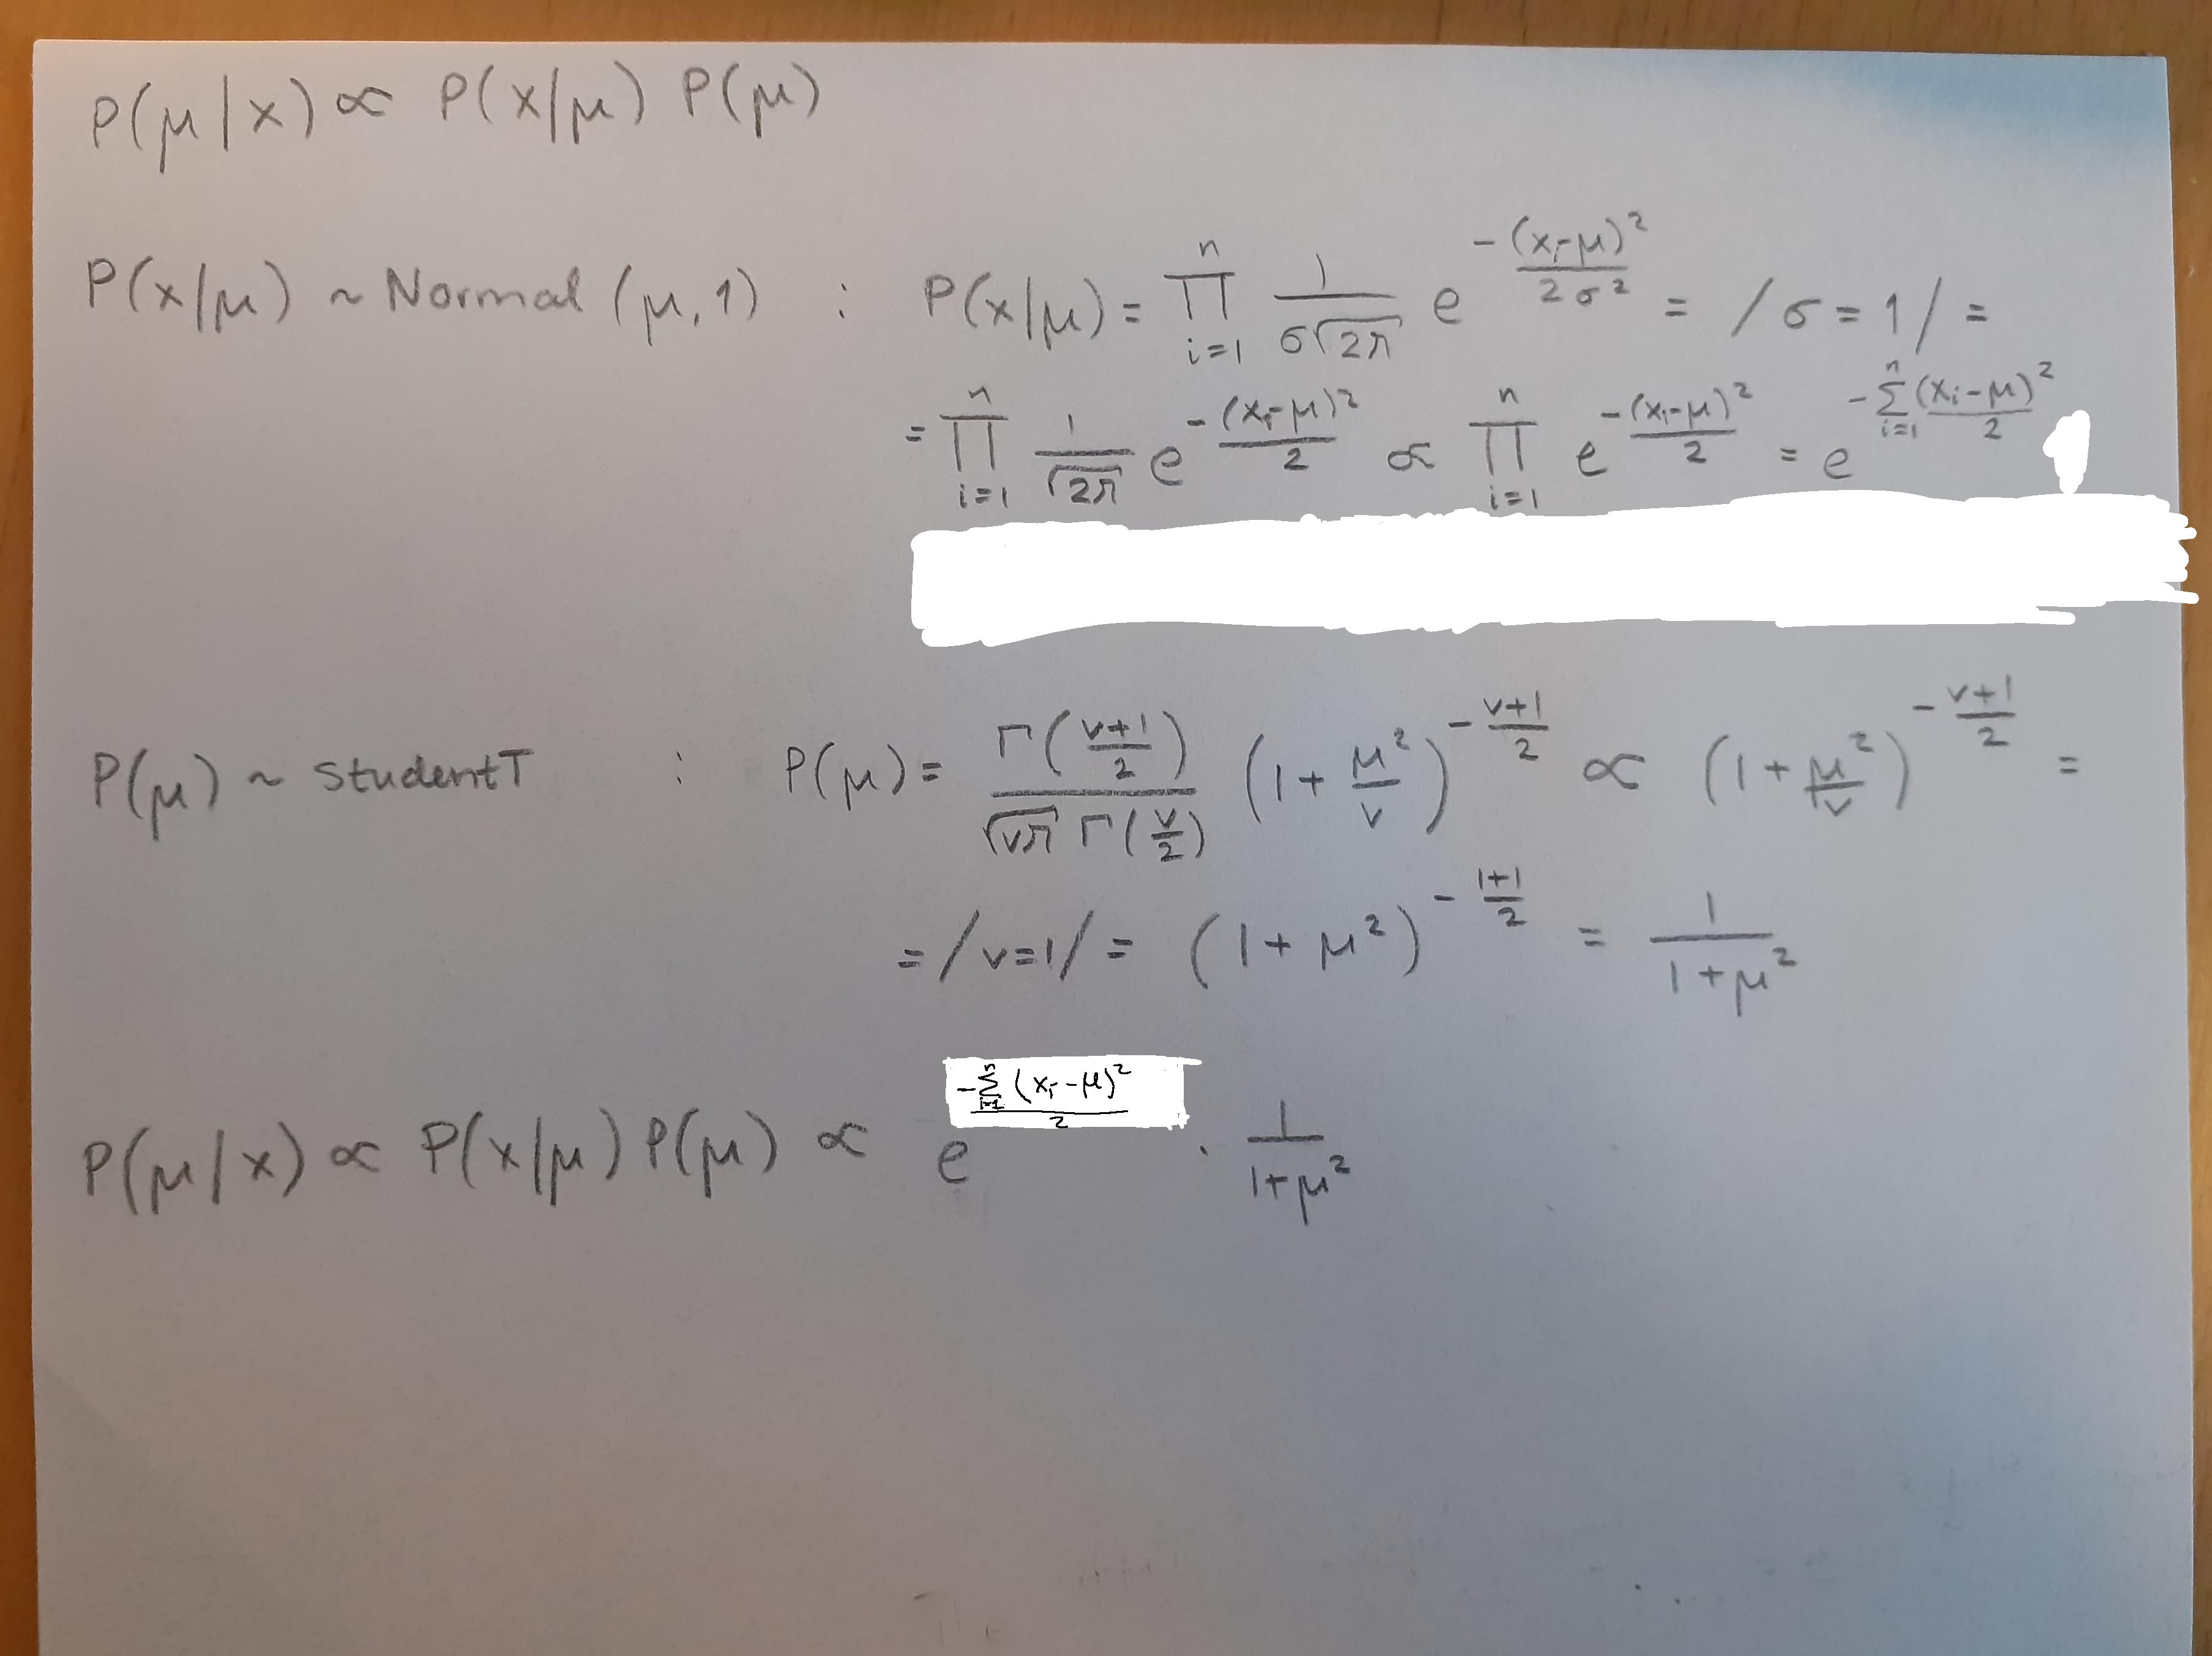 P(μ|x) ∝ P(x|μ) P(μ)
P(x|μ) ~ Normal (μ, 1) : P(x|μ) = ∏_{i=1}^{n} 1/(σ√(2π)) e^{-(x_i-μ)²/(2σ²)} = /σ = 1/ =
= ∏_{i=1}^{n} 1/√(2π) e^{-(x_i-μ)²/2} ∝ ∏_{i=1}^{n} e^{-(x_i-μ)²/2} = e^{-∑_{i=1}^{n} (x_i-μ)²/2}
P(μ) ~ studentT : P(μ) = Γ((ν+1)/2)/(√(νπ) Γ(ν/2)) (1 + μ²/ν)^{-(ν+1)/2} ∝ (1 + μ²/ν)^{-(ν+1)/2} =
= /ν=1/ = (1 + μ²)^{-(1+1)/2} = 1/(1+μ²)
P(μ|x) ∝ P(x|μ) P(μ) ∝ e^{-∑_{i=1}^{n} (x_i-μ)²/2} · 1/(1+μ²)